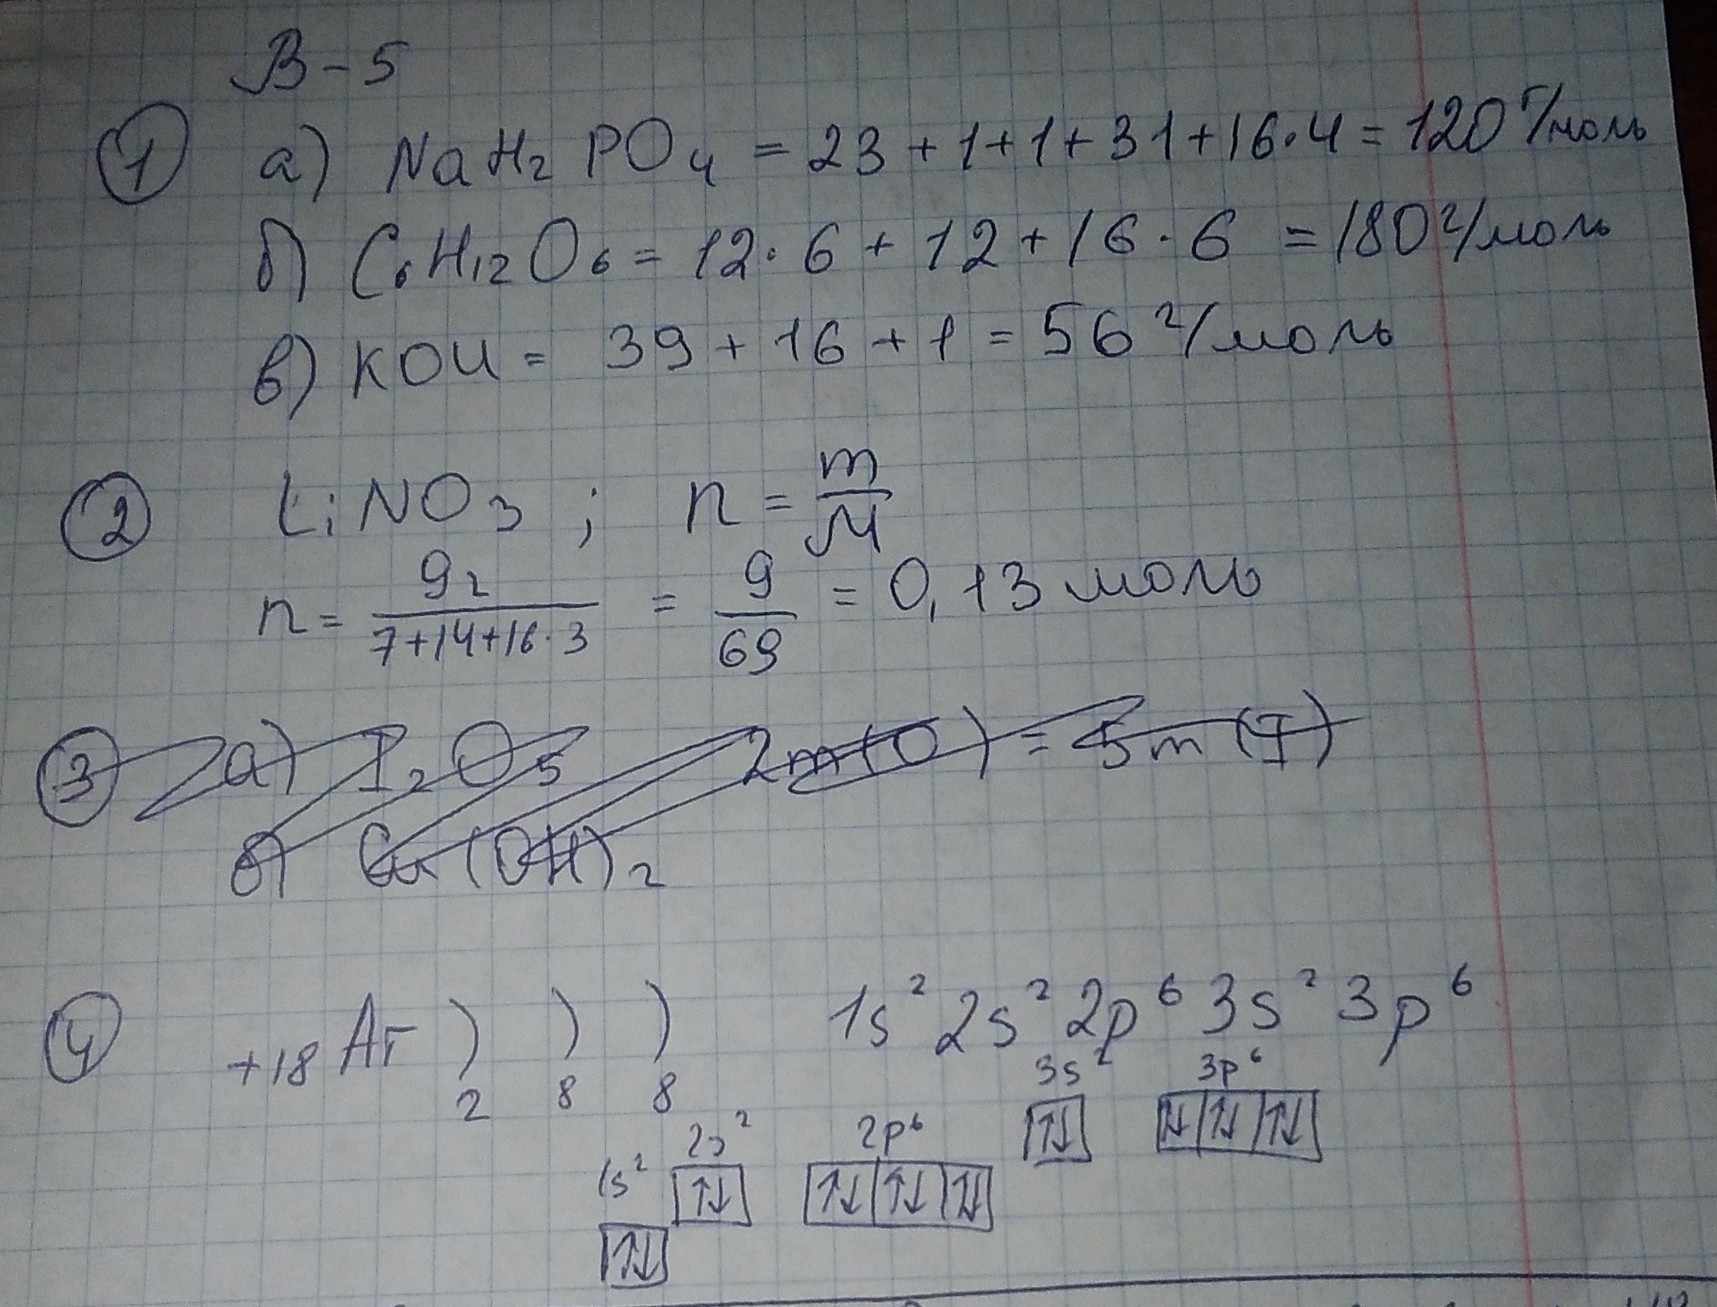 В-5
① а) NaH₂PO₄ = 23+1+1+31+16·4=120 г/моль
б) C₆H₁₂O₆ = 12·6+12+16·6 =180 г/моль
в) KOH = 39+16+1=56 г/моль
② LiNO₃ ; n = m/M
n = 9г/(7+14+16·3) = 9/69 = 0,13 моль
③ а) I₂O₅ 2m(O) = 5m(I)
б) Cu(OH)₂
④ +18 Ar ) ) ) 1s² 2s² 2p⁶ 3s² 3p⁶
2 8 8
3s² 3p⁶
↑↓ ↑↓ ↑↓ ↑↓
1s² 2s² 2p⁶
↑↓ ↑↓ ↑↓ ↑↓
↑↓